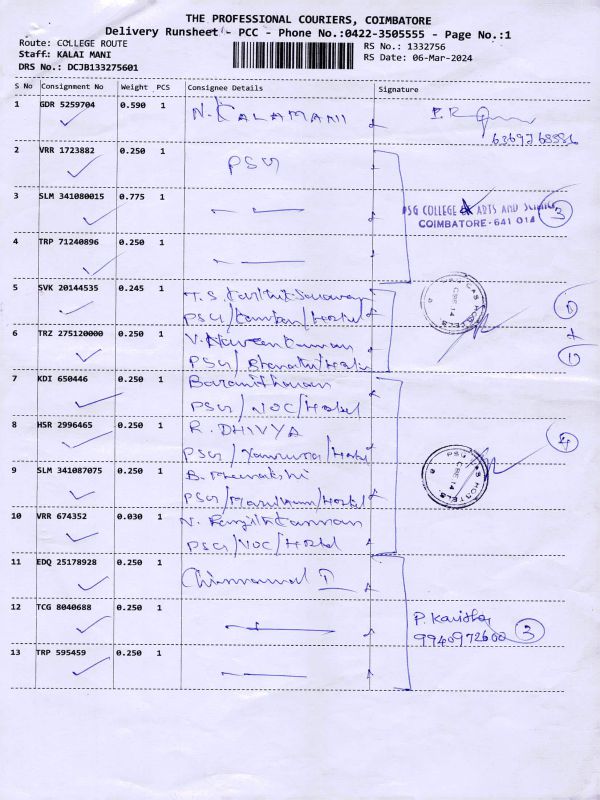 THE PROFESSIONAL COURIERS, COIMBATORE
Delivery Runsheet - PCC - Phone No.:0422-3505555 - Page No.:1
Route: COLLEGE ROUTE
RS No.: 1332756
Staff: KALAI MANI
RS Date: 06-Mar-2024
DRS No.: DCJB133275601
S No Consignment No Weight PCS Consignee Details Signature
1 GDR 5259704 0.590 1 N. KALAMANI
2 VRR 1723882 0.250 1 PSG
3 SLM 341080015 0.775 1
PSG COLLEGE OF ARTS AND SCIENCE 3
COIMBATORE-641 014
4 TRP 71240896 0.250 1
5 SVK 20144535 0.245 1 T. S.
PSG/ /Hostel
6 TRZ 275120000 0.250 1 V. Naveenkumar
PSG/Bharathi/Hostel
7 KDI 650446 0.250 1
PSG/VOC/Hostel
8 HSR 2996465 0.250 1 R. DHIVYA
PSG/Yamuna/Hostel
4
9 SLM 341087075 0.250 1 B. Meenakshi
PSG/ /Hostel
10 VRR 674352 0.030 1 N. Ranjithkannan
PSG/VOC/Hostel
11 EDQ 25178928 0.250 1
12 TCG 8040688 0.250 1
P.
9940972600 3
13 TRP 595459 0.250 1